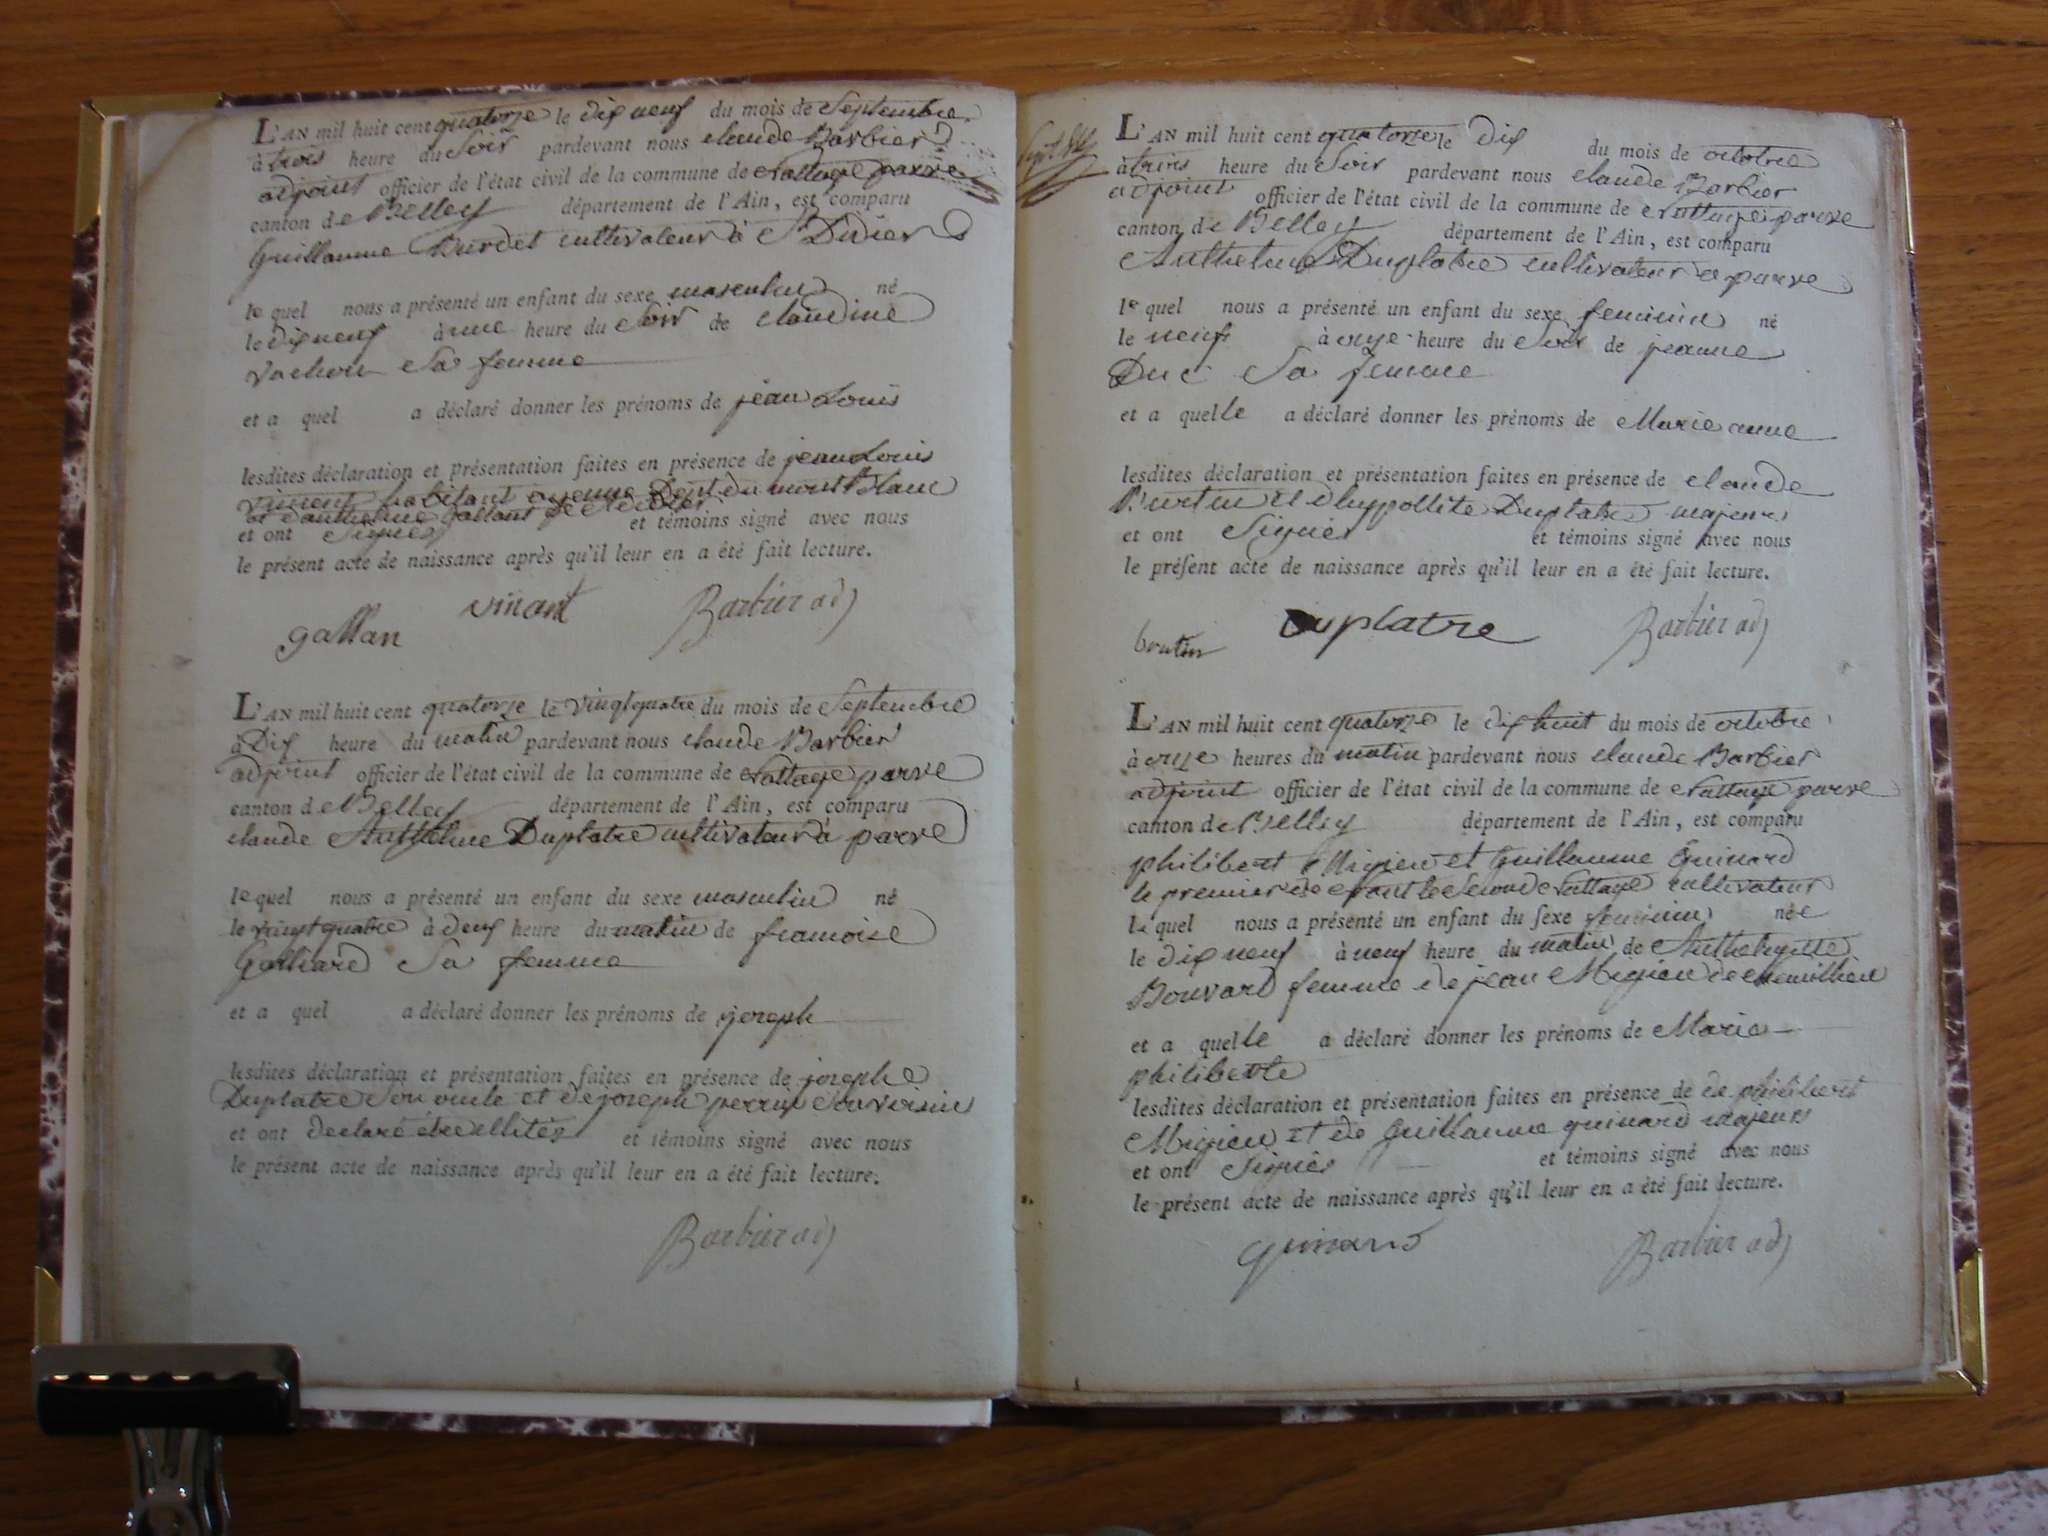 L'AN mil huit cent quatorze le dix neuf du mois de Septembre
à trois heure du Soir pardevant nous claude Barbier
adjoint officier de l'état civil de la commune de Nattage parve
canton de Belley département de l'Ain, est comparu
Guillaume Burdet cultivateur à St Didier
le quel nous a présenté un enfant du sexe masculin né
le dix neuf à une heure du Soir de claudine
Vachon Sa femme
et a quel a déclaré donner les prénoms de jean Louis
lesdites déclaration et présentation faites en présence de jean Louis
vincent habitant Dept du mont Blanc
et d'anthelme gallant de St didier
et ont Signés et témoins signé avec nous
le présent acte de naissance après qu'il leur en a été fait lecture.
gallan vinant Barbier adj
L'AN mil huit cent quatorze le vingt quatre du mois de Septembre
à Dix heure du matin pardevant nous claude Barbier
adjoint officier de l'état civil de la commune de Nattage parve
canton de Belley département de l'Ain, est comparu
claude Anthelme Duplatre cultivateur à parve
le quel nous a présenté un enfant du sexe masculin né
le vingt quatre à deux heure du matin de francoise
Galliard Sa femme
et a quel a déclaré donner les prénoms de joseph
lesdites déclaration et présentation faites en présence de joseph
Duplatre Son oncle et de joseph perrin Son voisin
et ont declaré être illités et témoins signé avec nous
le présent acte de naissance après qu'il leur en a été fait lecture.
Barbier adj
L'AN mil huit cent quatorze le dix du mois de octobre
à trois heure du Soir pardevant nous claude Barbier
adjoint officier de l'état civil de la commune de Nattage parve
canton de Belley département de l'Ain, est comparu
Anthelme Duplatre cultivateur a parve
le quel nous a présenté un enfant du sexe feminin né
le neuf à onze heure du Soir de jeanne
Duc Sa femme
et a quelle a déclaré donner les prénoms de Marie anne
lesdites déclaration et présentation faites en présence de claude
Burtin et d'hyppollite Duplatre majeurs
et ont Signés et témoins signé avec nous
le présent acte de naissance après qu'il leur en a été fait lecture.
brutin Duplatre Barbier adj
L'AN mil huit cent quatorze le dix huit du mois de octobre
à onze heures du matin pardevant nous claude Barbier
adjoint officier de l'état civil de la commune de Nattage parve
canton de Belley département de l'Ain, est comparu
philibert Migieu et Guillaume Guinard
le premier de le Second Nattage cultivateur
le quel nous a présenté un enfant du sexe feminin née
le dix neuf à neuf heure du matin de
Bouvard femme de jean Migieu de
et a quelle a déclaré donner les prénoms de Marie
philiberte
lesdites déclaration et présentation faites en présence de de philibert
Migieu et de Guillaume guinard majeurs
et ont Signés et témoins signé avec nous
le présent acte de naissance après qu'il leur en a été fait lecture.
guinard Barbier adj